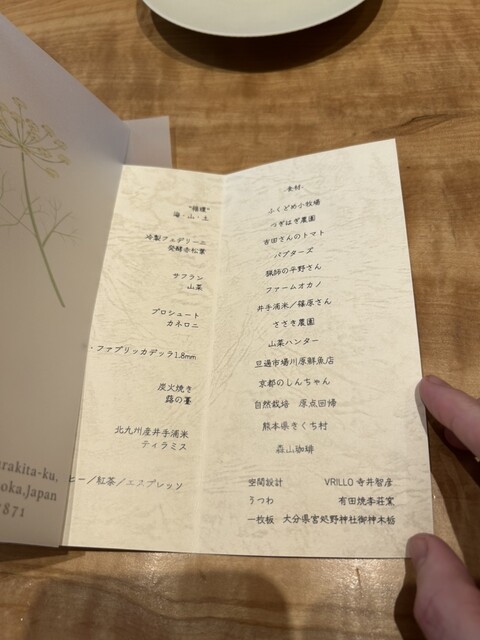 rakita-ku,
oka,Japan
871
"循環"
海・山・土
冷製フェデリーニ
発酵赤松葉
サフラン
山菜
プロシュート
カネロニ
・ファブリッカデッラ1.8mm
炭火焼き
蕗の薹
北九州産井手浦米
ティラミス
ニー／紅茶／エスプレッソ
食材
ふくどめ小牧場
つぎはぎ農園
吉田さんのトマト
バブターズ
猟師の平野さん
ファームオカノ
井手浦米／篠原さん
ささき農園
山菜ハンター
旦過市場川原鮮魚店
京都のしんちゃん
自然栽培 原点回帰
熊本県きくち村
森山珈琲
空間設計 VRILLO 寺井智彦
うつわ 有田焼李荘窯
一枚板 大分県宮処野神社御神木栃